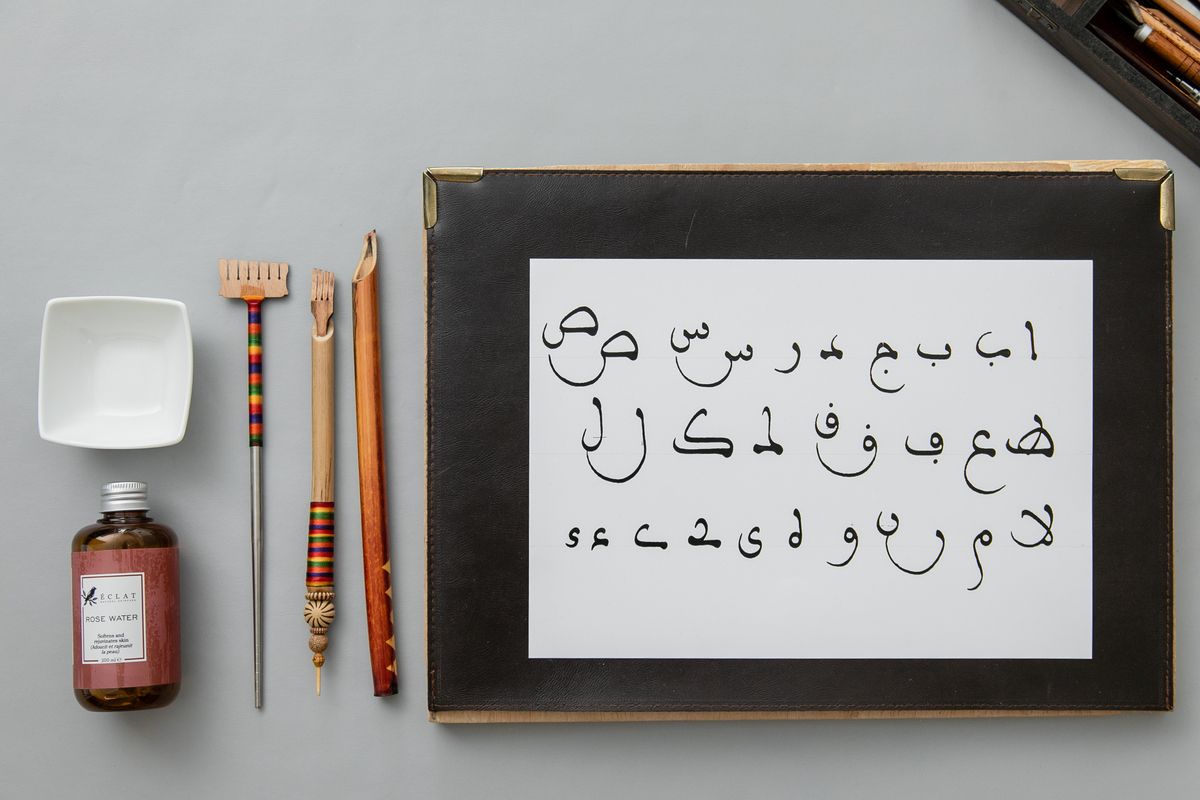 ا ب ب ج د ر س س ص ص
ط ع ڡ ف ف ك ک ل ل
لا م ں ں و ه ى ے ے ء ء
ÉCLAT
ROSE WATER
Softens and
rejuvenates skin
(Adoucit et rajeunit
la peau)
200 ml e